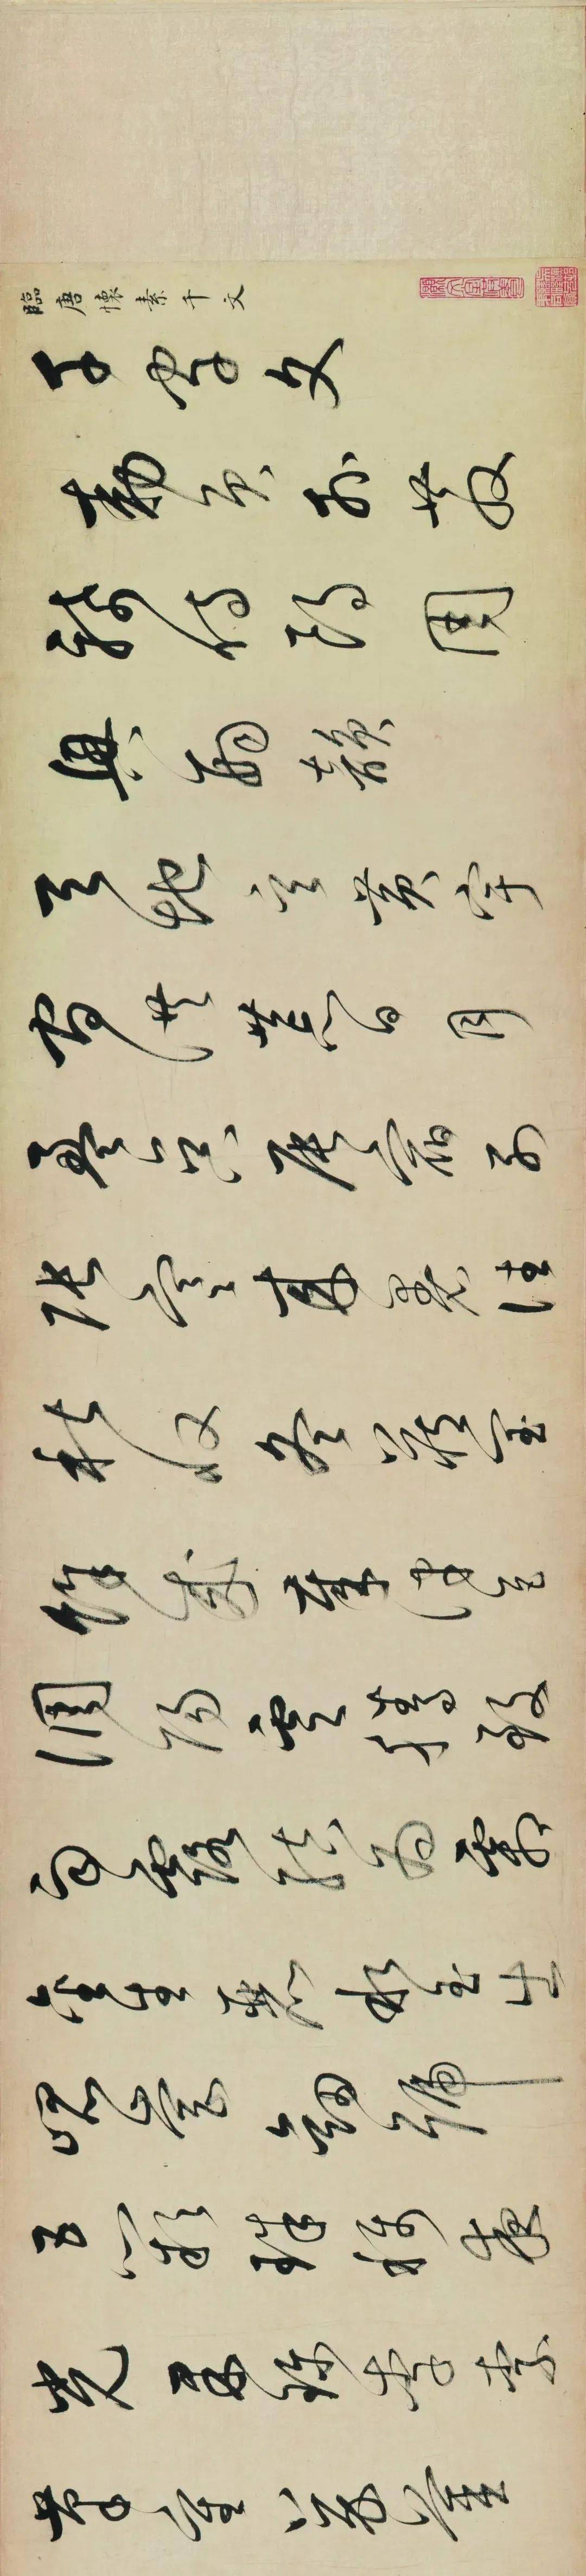 臨唐懷素千文
千字文
勅員外散
騎侍郎周
興嗣韻
天地玄黃宇
宙洪荒日月
盈昃辰宿列
張寒來暑往
秋收冬藏閏
餘成歲律呂
調陽雲騰致
雨露結為霜
金生麗水玉出
崑岡劍號
巨闕珠稱夜
光果珍李柰
菜重芥薑